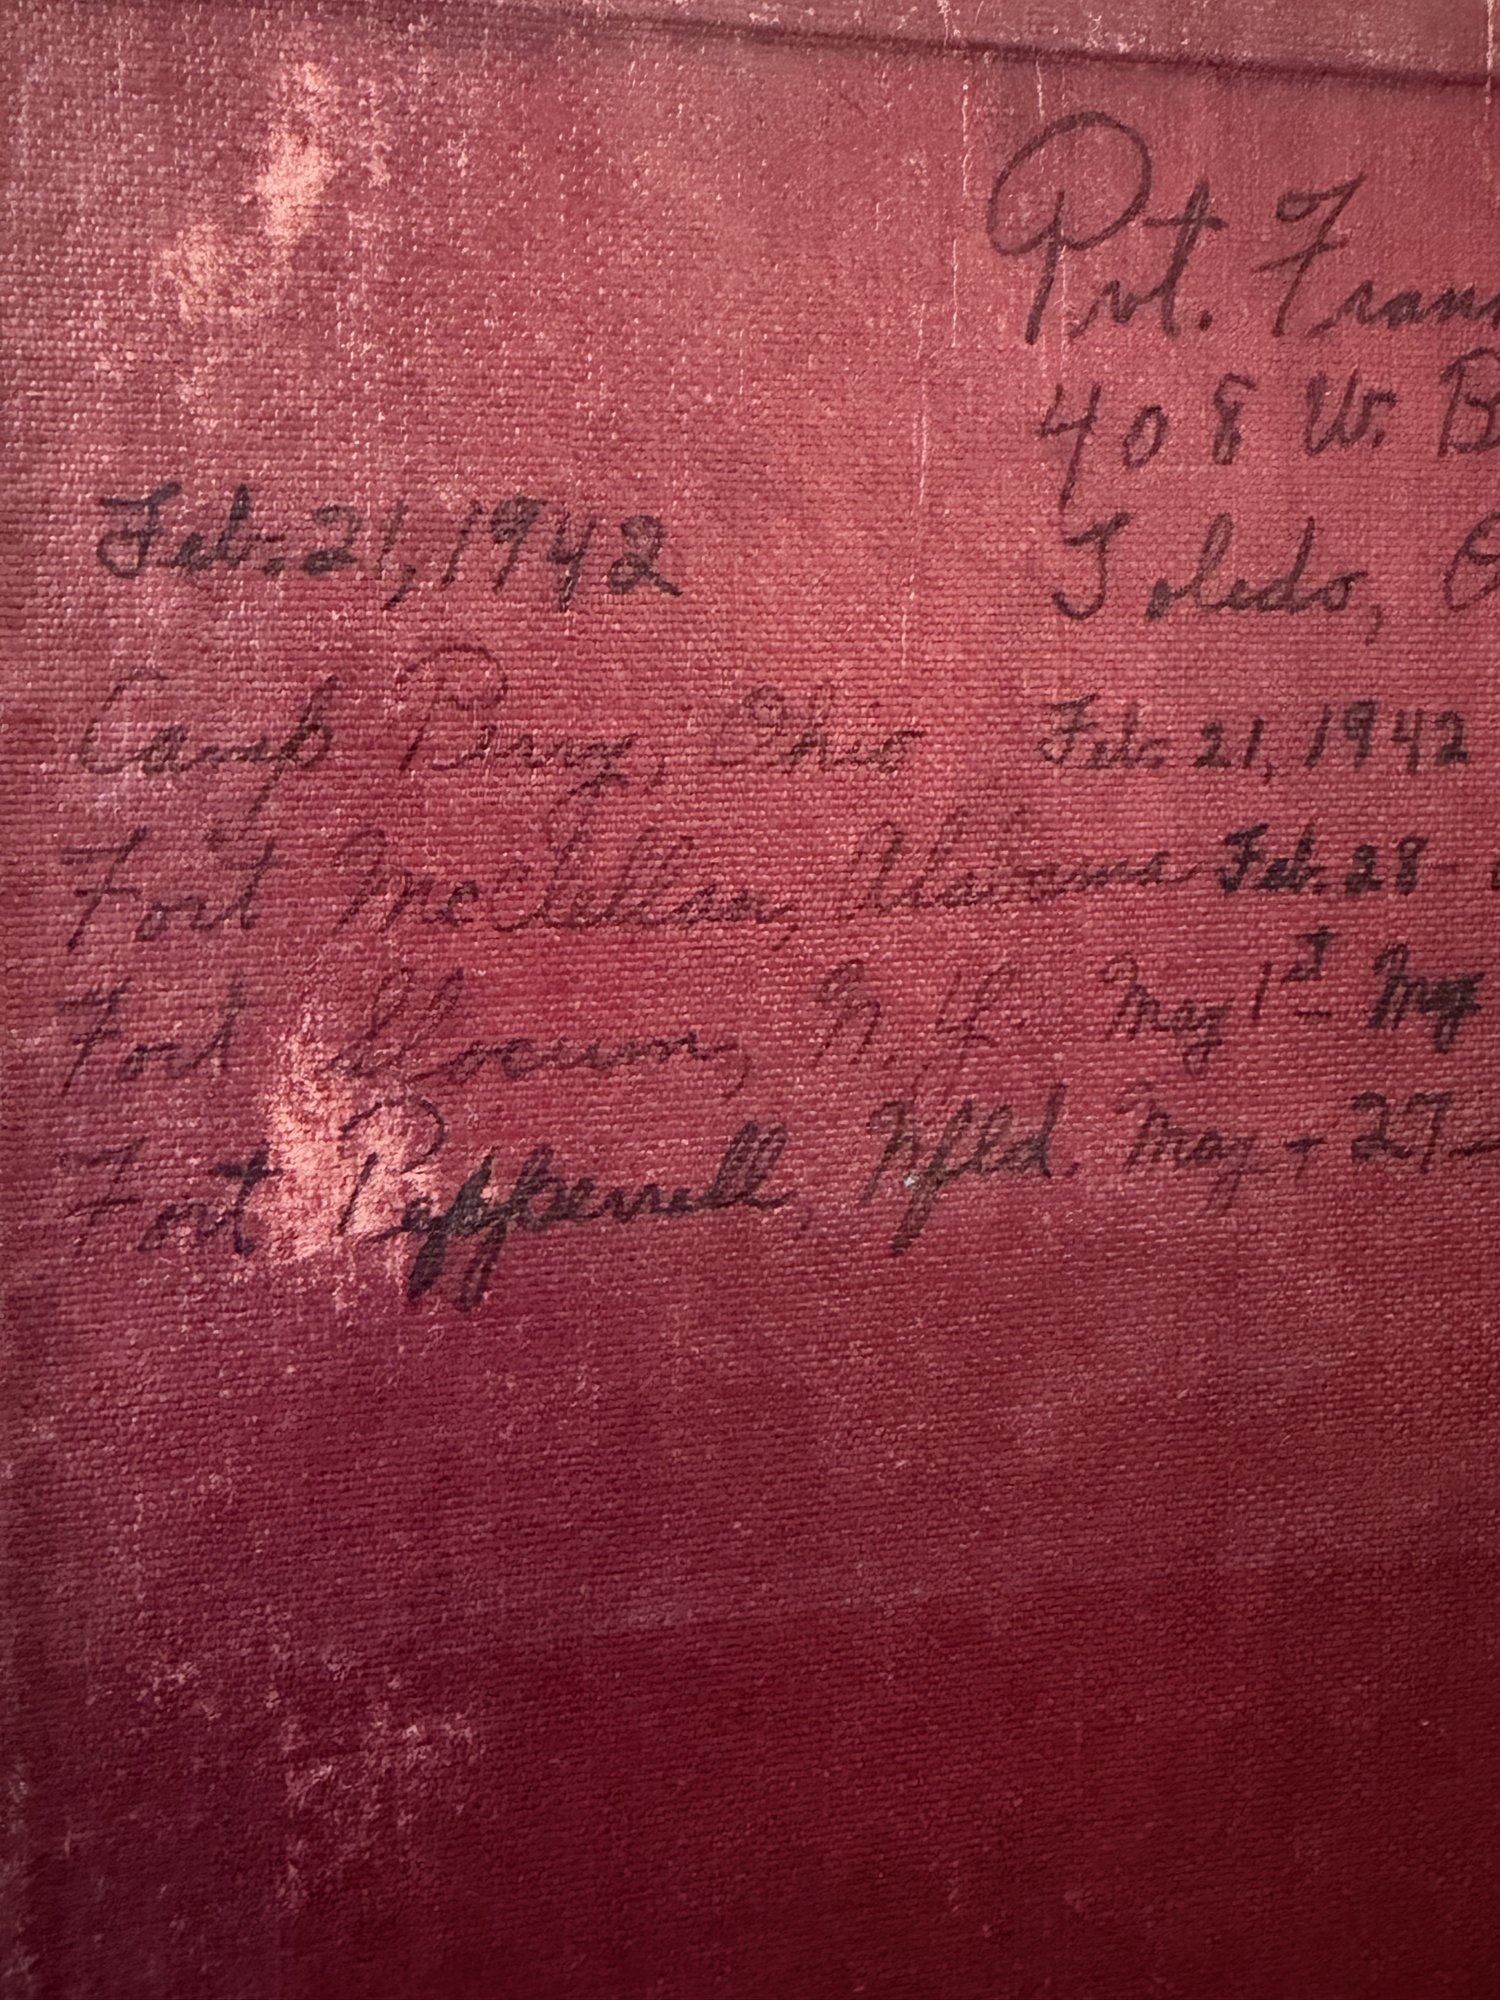 Pvt. Fran
408 W. B
Toledo, O
Feb. 21, 1942
Camp Perry, Ohio Feb. 21, 1942
Fort McClellan, Alabama Feb. 28
Fort Slocum, N.Y. May 1st - May
Fort Pepperrell, Nfld. May - 27 -